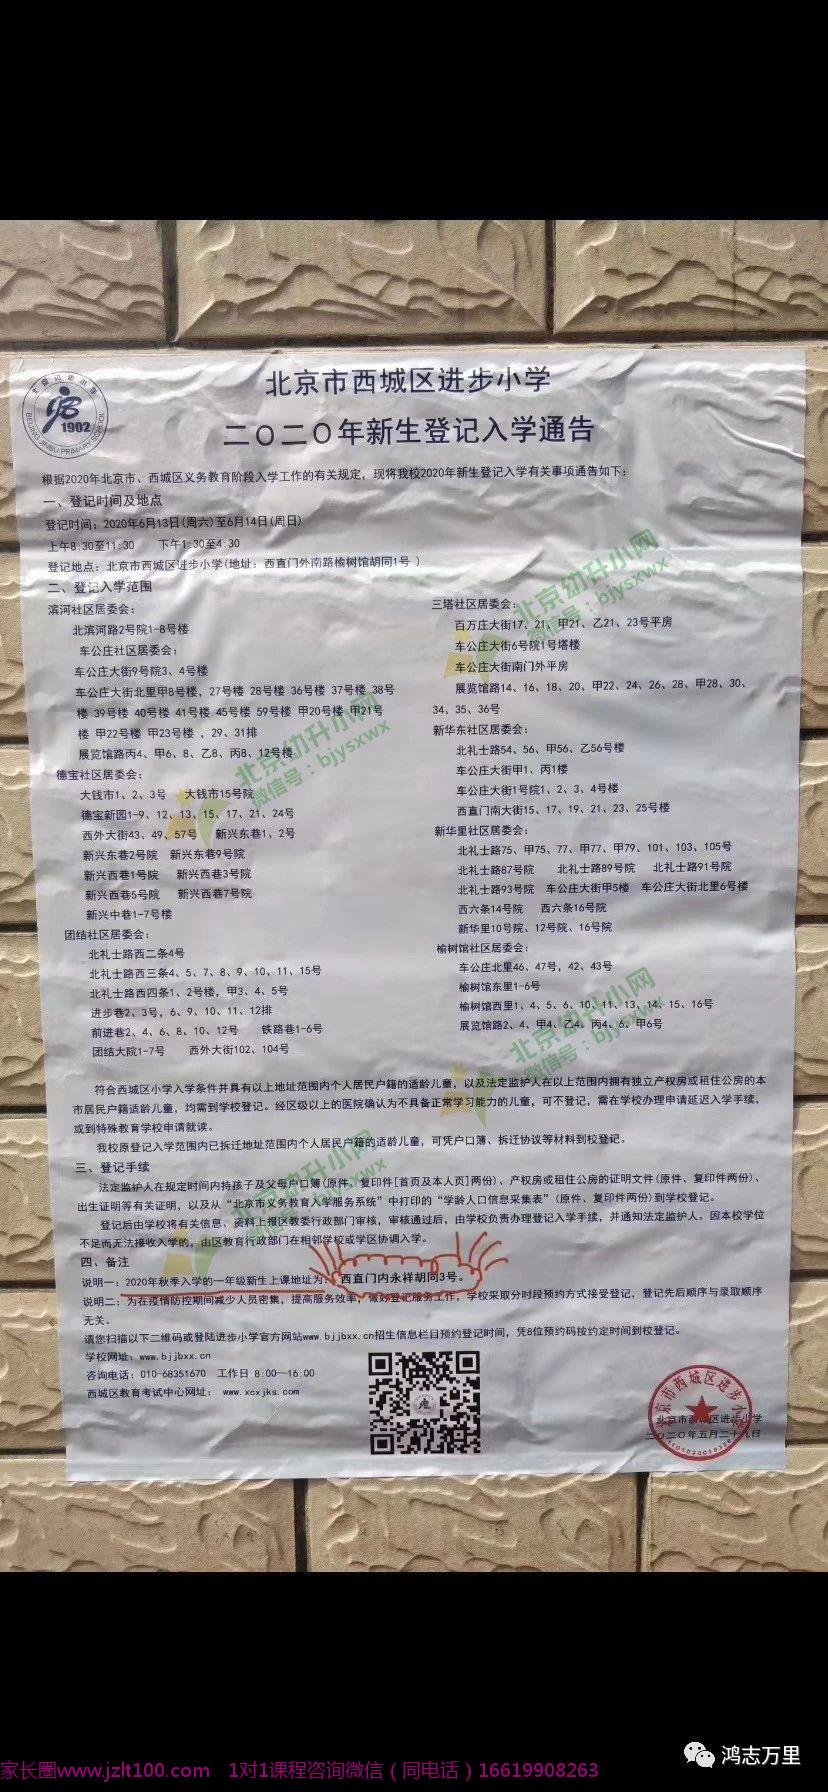 北京市西城区进步小学
二〇二〇年新生登记入学通告
1902
BEIJING JINBU PRIMARY SCHOOL
根据2020年北京市、西城区义务教育阶段入学工作的有关规定，现将我校2020年新生登记入学有关事项通告如下：
一、登记时间及地点
登记时间：2020年6月13日(周六)至6月14日(周日)
上午8:30至11:30 下午1:30至4:30
登记地点：北京市西城区进步小学(地址：西直门外南路榆树馆胡同1号 )
二、登记入学范围
滨河社区居委会：
北滨河路2号院1-8号楼
车公庄社区居委会：
车公庄大街9号院3、4号楼
车公庄大街北里甲8号楼，27号楼 28号楼 36号楼 37号楼 38号
楼 39号楼 40号楼 41号楼 45号楼 59号楼 甲20号楼 甲21号
楼 甲22号楼 甲23号楼 ，29、31排
展览馆路丙4、甲6、8、乙8、丙8、12号楼
德宝社区居委会：
大钱市1、2、3号 大钱市15号院
德宝新园1-9、12、13、15、17、21、24号
西外大街43、49、57号 新兴东巷1、2号
新兴东巷2号院 新兴东巷9号院
新兴西巷1号院 新兴西巷3号院
新兴西巷5号院 新兴西巷7号院
新兴中巷1-7号楼
团结社区居委会：
北礼士路西二条4号
北礼士路西三条4、5、7、8、9、10、11、15号
北礼士路西四条1、2号楼，甲3、4、5号
进步巷2、3号，6、9、10、11、12排
前进巷2、4、6、8、10、12号 铁路巷1-6号
团结大院1-7号 西外大街102、104号
三塔社区居委会：
百万庄大街17、21、甲21、乙21、23号平房
车公庄大街6号院1号塔楼
车公庄大街南门外平房
展览馆路14、16、18、20、甲22、24、26、28、甲28、30、
34、35、36号
新华东社区居委会：
北礼士路54、56、甲56、乙56号楼
车公庄大街甲1、丙1楼
车公庄大街1号院1、2、3、4号楼
西直门南大街15、17、19、21、23、25号楼
新华里社区居委会：
北礼士路75、甲75、77、甲77、甲79、101、103、105号
北礼士路87号院 北礼士路89号院 北礼士路91号院
北礼士路93号院 车公庄大街甲5楼 车公庄大街北里6号楼
西六条14号院 西六条16号院
新华里10号院、12号院、16号院
榆树馆社区居委会：
车公庄北里46、47号，42、43号
榆树馆东里1-6号
榆树馆西里1、4、5、6、10、11、13、14、15、16号
展览馆路2、4、甲4、乙4、丙4、6、甲6号
符合西城区小学入学条件并具有以上地址范围内个人居民户籍的适龄儿童，以及法定监护人在以上范围内拥有独立产权房或租住公房的本
市居民户籍适龄儿童，均需到学校登记。经区级以上的医院确认为不具备正常学习能力的儿童，可不登记，需在学校办理申请延迟入学手续，
或到特殊教育学校申请就读。
我校原登记入学范围内已拆迁地址范围内个人居民户籍的适龄儿童，可凭户口簿、拆迁协议等材料到校登记。
三、登记手续
法定监护人在规定时间内持孩子及父母户口簿(原件、复印件[首页及本人页]两份)、产权房或租住公房的证明文件(原件、复印件两份)、
出生证明等有关证明，以及从“北京市义务教育入学服务系统”中打印的“学龄人口信息采集表”(原件、复印件两份)到学校登记。
登记后由学校将有关信息、资料上报区教委行政部门审核，审核通过后，由学校负责办理登记入学手续，并通知法定监护人。因本校学位
不足而无法接收入学的，由区教育行政部门在相邻学校或学区协调入学。
四、备注
说明一：2020年秋季入学的一年级新生上课地址为：西直门内永祥胡同3号。
说明二：为在疫情防控期间减少人员密集，提高服务效率，做好登记服务工作，学校采取分时段预约方式接受登记，登记先后顺序与录取顺序
无关。
请您扫描以下二维码或登陆进步小学官方网站www.bjjbxx.cn招生信息栏目预约登记时间，凭8位预约码按约定时间到校登记。
学校网址：www.bjjbxx.cn
咨询电话：010-68351670 工作日 8:00—16:00
西城区教育考试中心网址： www.xcxjks.com
北京市西城区进步小学
二〇二〇年五月二十九日
北京市西城区进步小学
北京幼升小网
微信号：bjysxwx
北京幼升小网
微信号：bjysxwx
北京幼升小网
微信号：bjysxwx
北京幼升小网
微信号：bjysxwx
鸿志万里
家长圈www.jzlt100.com 1对1课程咨询微信（同电话）16619908263